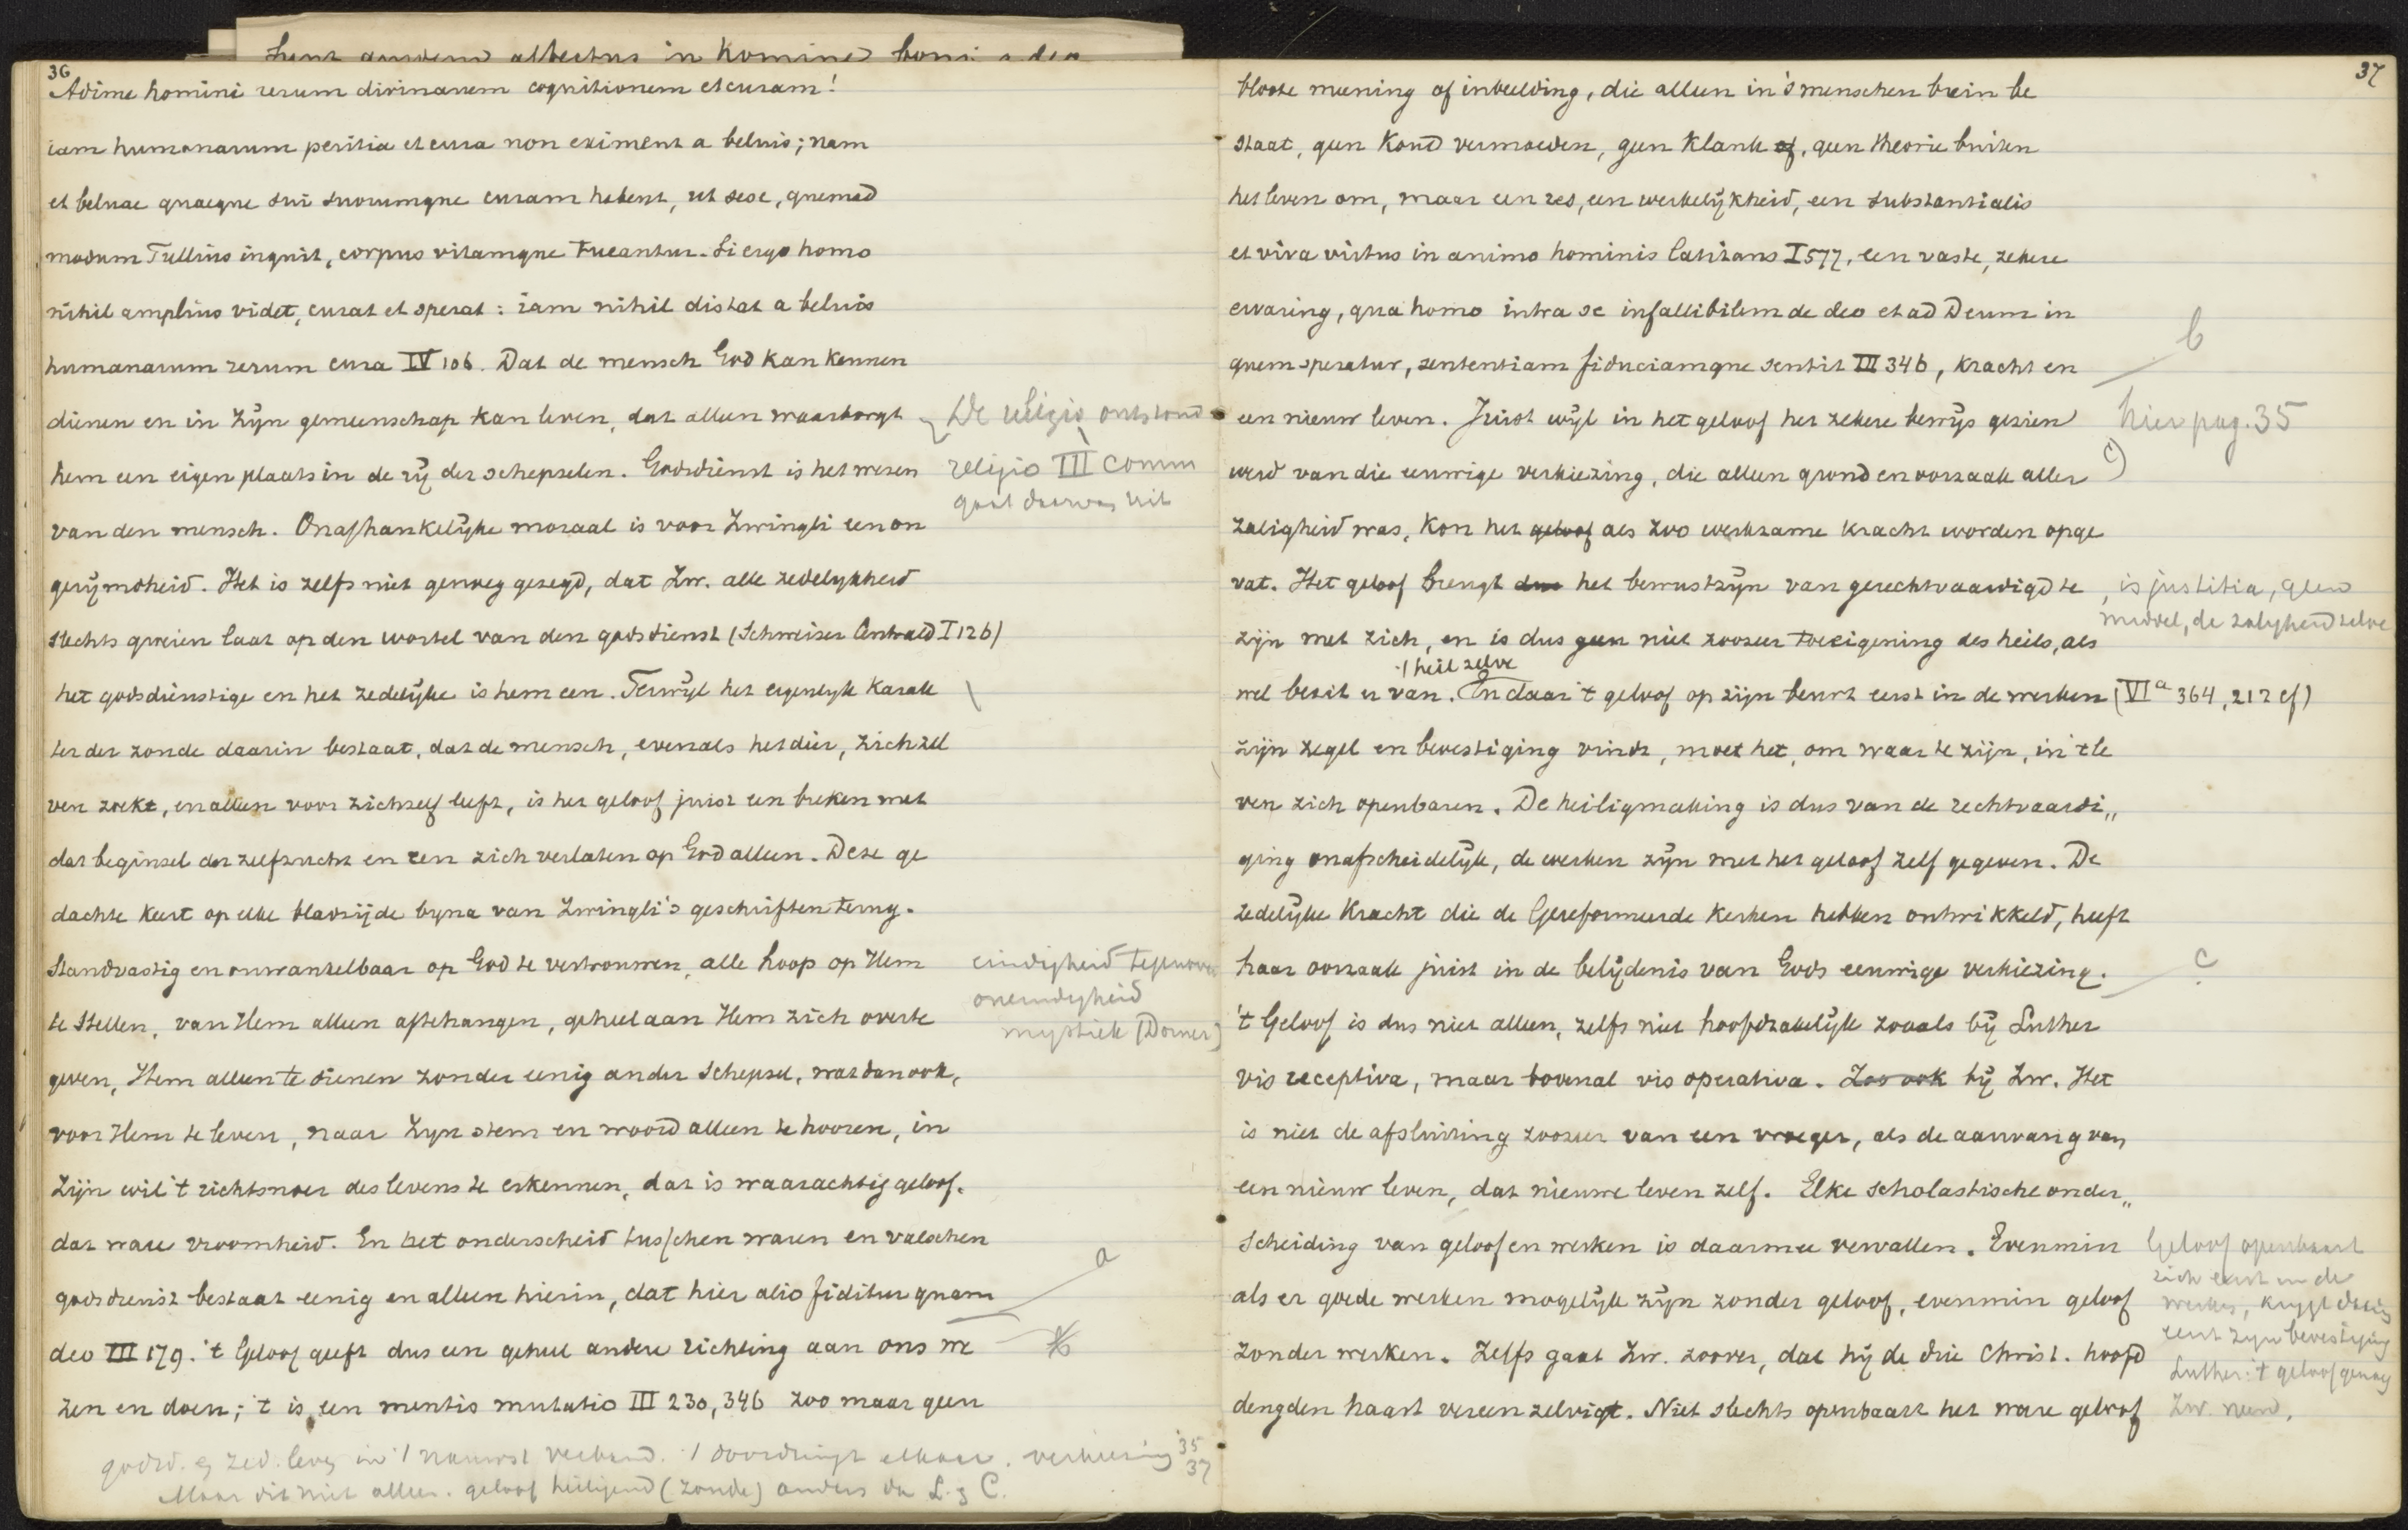 36
Adime homini rerum divinarum cognitionem et curam!
iam humanarum peritia et cura non eximent a beluis; nam
et beluae quaeque sui suorumque curam habent, ut sese, quemad
modum Tullius inquit, corpus vitamque tueantur. Si ergo homo
nihil amplius videt, curat et sperat: iam nihil distat a beluis
humanarum rerum cura IV 106. Dat de mensch God kan kennen
dienen en in zijn gemeenschap kan leven, dat alleen waarborgt
hem een eigen plaats in de rij der schepselen. Godsdienst is het wezen
van den mensch. Onafhankelijke moraal is voor Zwingli een on
gerijmdheid. Het is zelfs niet genoeg gezegd, dat Zw. alle zedelijkheid
slechts groeien laat op den wortel van den godsdienst (Schweizer Centrald I 126)
het godsdienstige en het zedelijke is hem een. Terwijl het eigenlijk karak
ter der zonde daarin bestaat, dat de mensch, evenals het dier, zich zel
ven zoekt, en alleen voor zichzelf leeft, is het geloof juist een breken met
dat beginsel der zelfzucht en een zich verlaten op God alleen. Deze ge
dachte keert op elke bladzijde byna van Zwingli's geschriften terug.
Standvastig en onwankelbaar op God te vertrouwen, alle hoop op Hem
te stellen, van Hem alleen aftehangen, geheel aan Hem zich overte
geven, Hem alleen te dienen zonder eenig ander schepsel, wat dan ook,
voor Hem te leven, naar Zyn stem en woord alleen te hooren, in
Zijn wil 't richtsnoer des levens te erkennen, dat is waarachtig geloof.
dat ware vroomheid. En het onderscheid tusschen waren en valschen
godsdienst bestaat eenig en alleen hierin, dat hier alio fiditur quam
deo III 179. 't Geloof geeft dus een geheel andere richting aan ons we
zen en doen; 't is een mentis mutatio III 230, 346 zoo maar geen
De religio ontstond
religio III comm
gaat daarvan uit
eindigheid tegenover
oneindigheid
mystiek (Dorner)
a
godsd. en zed. leven in 't nauwst verband. 't doordringt elkaar. verkiezing 35
37
Maar dit niet alleen. geloof heiligend (zonde) anders dan L. en C.
37
bloote meening of inbeelding, die alleen in 's menschen brein be
staat, geen koud vermoeden, geen klank of, geen theorie buiten
het leven om, maar een res, een werkelijkheid, een substantialis
et viva virtus in animo hominis latitans I 577, een vaste, zekere
ervaring, qua homo intra se infallibilem de deo et ad Deum in
quem speratur, sententiam fiduciamque sentit III 346, kracht en
een nieuw leven. Juist wijl in het geloof het zekere bewijs gezien
werd van die eeuwige verkiezing, die alleen grond en oorzaak aller
zaligheid was, kon het geloof als zoo werkzame kracht worden opge
vat. Het geloof brengt dus het bewustzijn van gerechtvaardigd te
zijn met zich, en is dus geen niet zoozeer toeeigening des heils, als
't heil zelve
wel bezit er van. En daar 't geloof op zijn beurt eerst in de werken (VIa 364, 212 cf)
zijn zegel en bevestiging vindt, moet het, om waar te zijn, in 't le
ven zich openbaren. De heiligmaking is dus van de rechtvaardi„
ging onafscheidelijk, de werken zijn met het geloof zelf gegeven. De
zedelijke kracht die de Gereformeerde kerken hebben ontwikkeld, heeft
haar oorzaak juist in de belijdenis van Gods eeuwige verkiezing.
't Geloof is dus niet alleen, zelfs niet hoofdzakelijk zooals bij Luther
vis receptiva, maar bovenal vis operativa. Zoo ook bij Zw. Het
is niet de afsluiting zoozeer van een vroeger, als de aanvang van
een nieuw leven, dat nieuwe leven zelf. Elke scholastische onder„
scheiding van geloof en werken is daarmee vervallen. Evenmin
als er goede werken mogelijk zijn zonder geloof, evenmin geloof
zonder werken. Zelfs gaat Zw. zoover, dat hij de drie Christ. hoofd
deugden haast vereenzelvigt. Niet slechts openbaart het ware geloof
b
hier pag. 35
c)
is justitia, geen
middel, de zaligheid zelve
c
Geloof openbaart
zich eerst in de
werken, krijgt daarin
eerst zijn bevestiging
Luther: 't geloof genoeg
Zw. neen.